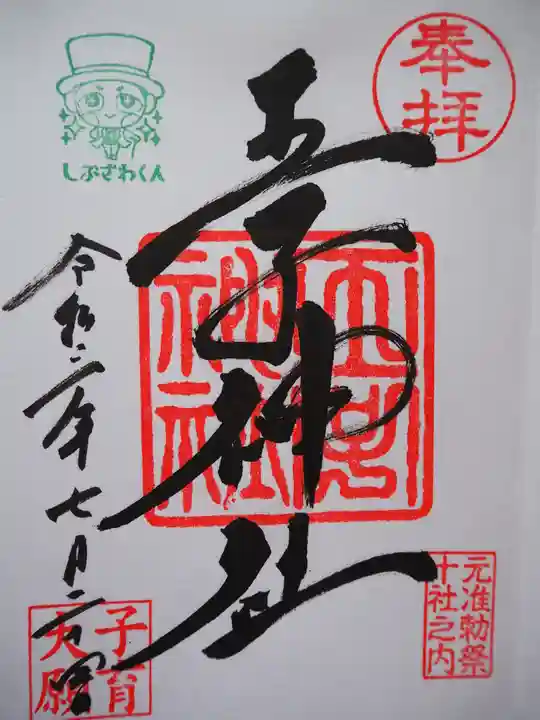 奉拝
しぶざわくん
王子神社
王子
神社
令和二年七月
元准勅祭
十社之内
子育
大願